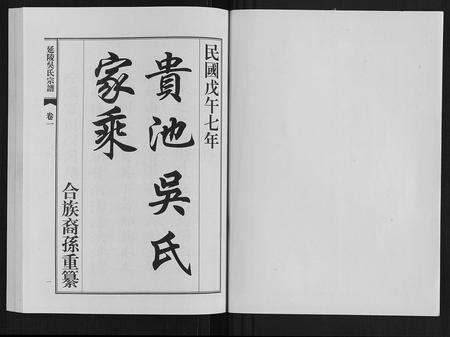 民國戊午七年
貴池吳氏
家乘
合族裔孫重纂
延陵吳氏宗譜
卷一
一